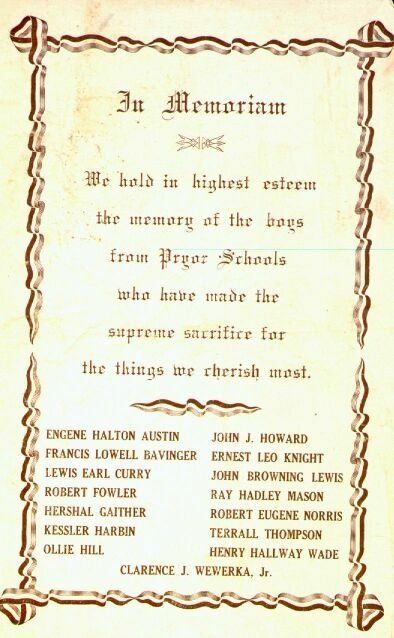 In Memoriam
We hold in highest esteem
the memory of the boys
from Pryor Schools
who have made the
supreme sacrifice for
the things we cherish most.
ENGENE HALTON AUSTIN
FRANCIS LOWELL BAVINGER
LEWIS EARL CURRY
ROBERT FOWLER
HERSHAL GAITHER
KESSLER HARBIN
OLLIE HILL
JOHN J. HOWARD
ERNEST LEO KNIGHT
JOHN BROWNING LEWIS
RAY HADLEY MASON
ROBERT EUGENE NORRIS
TERRALL THOMPSON
HENRY HALLWAY WADE
CLARENCE J. WEWERKA, Jr.